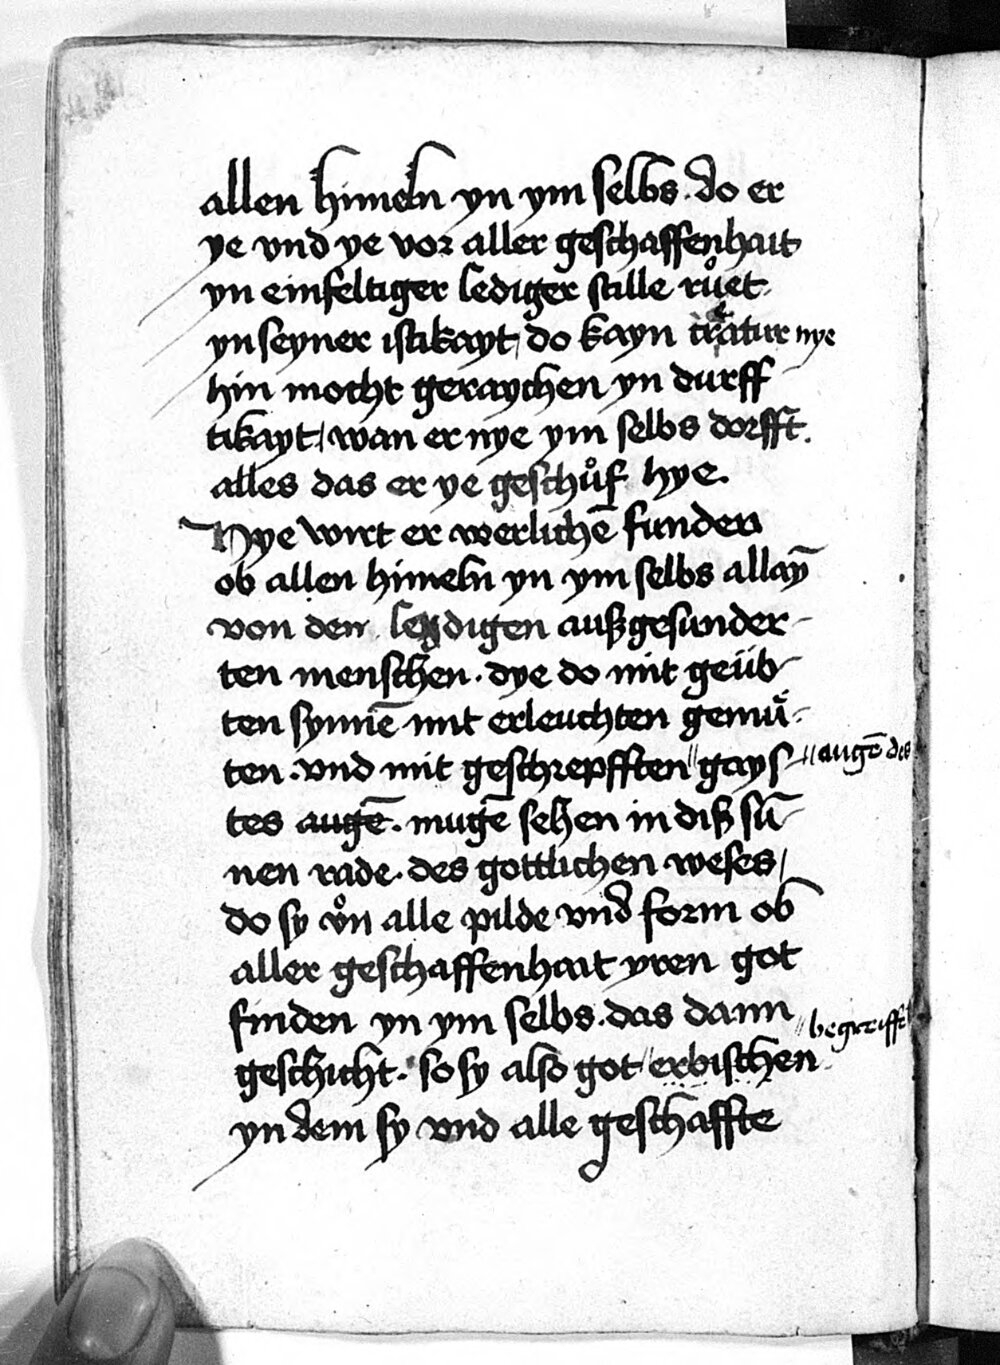 allen himeln yn ym selbs · do er
ye vnd ye vor aller geschaffenhait
yn einfeltiger lediger stille růet
yn seyner istikayt / do kayn creatur nye
hin mocht geraychen yn durff
tikayt / wan er nye ym selbs dorfft.
alles das er ye geschůf hye.
Hye wirt er werlichē funden
ob allen himeln yn ym selbs allaȳ
von den ledigen außgesunder-
ten menschen · dye do mit geüb-
ten synnē mit erleuchten gemuͤ-
ten · vnd mit geschrepfften " gays - " augē des
tes augē · mugē sehen in diß sū-
nen rade · des gottlichen weses /
do sy vͦn alle pilde vnd form ob
aller geschaffenhait yren got
finden yn ym selbs · das dann
geschicht · so sy also got " erbischen " begreifft
yn dem sy vnd alle geschaffte